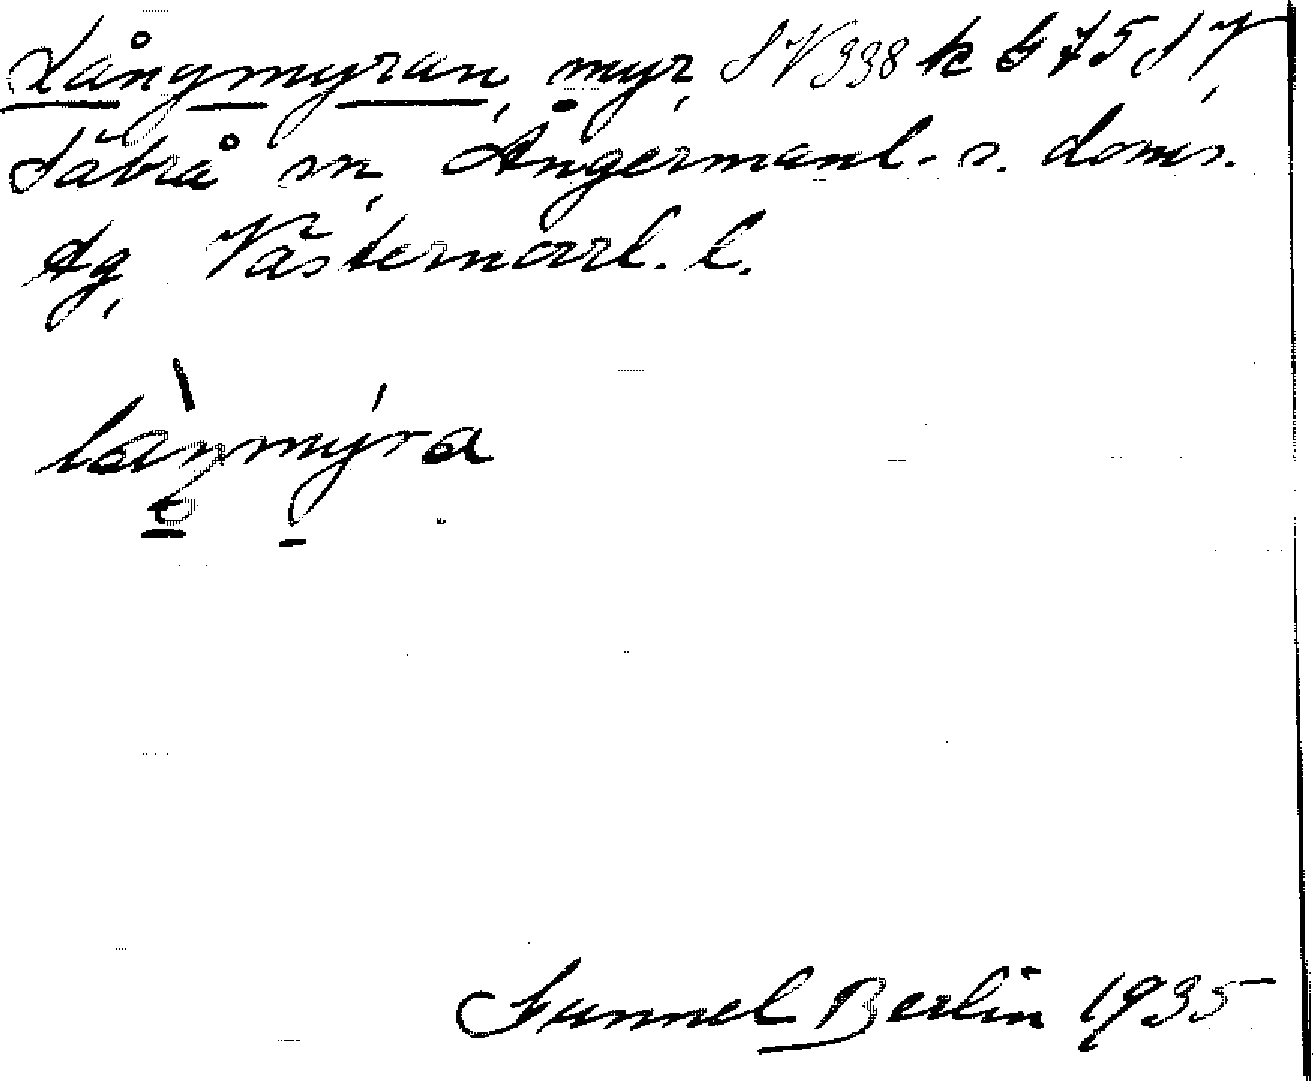 Långmyran, myr, SV 998 k G 75 d V,
Säbrå sn, Ångermanl. s. doms.
tg, Västernorrl. l.
làŋmýra
Gunnel Berlin 1935